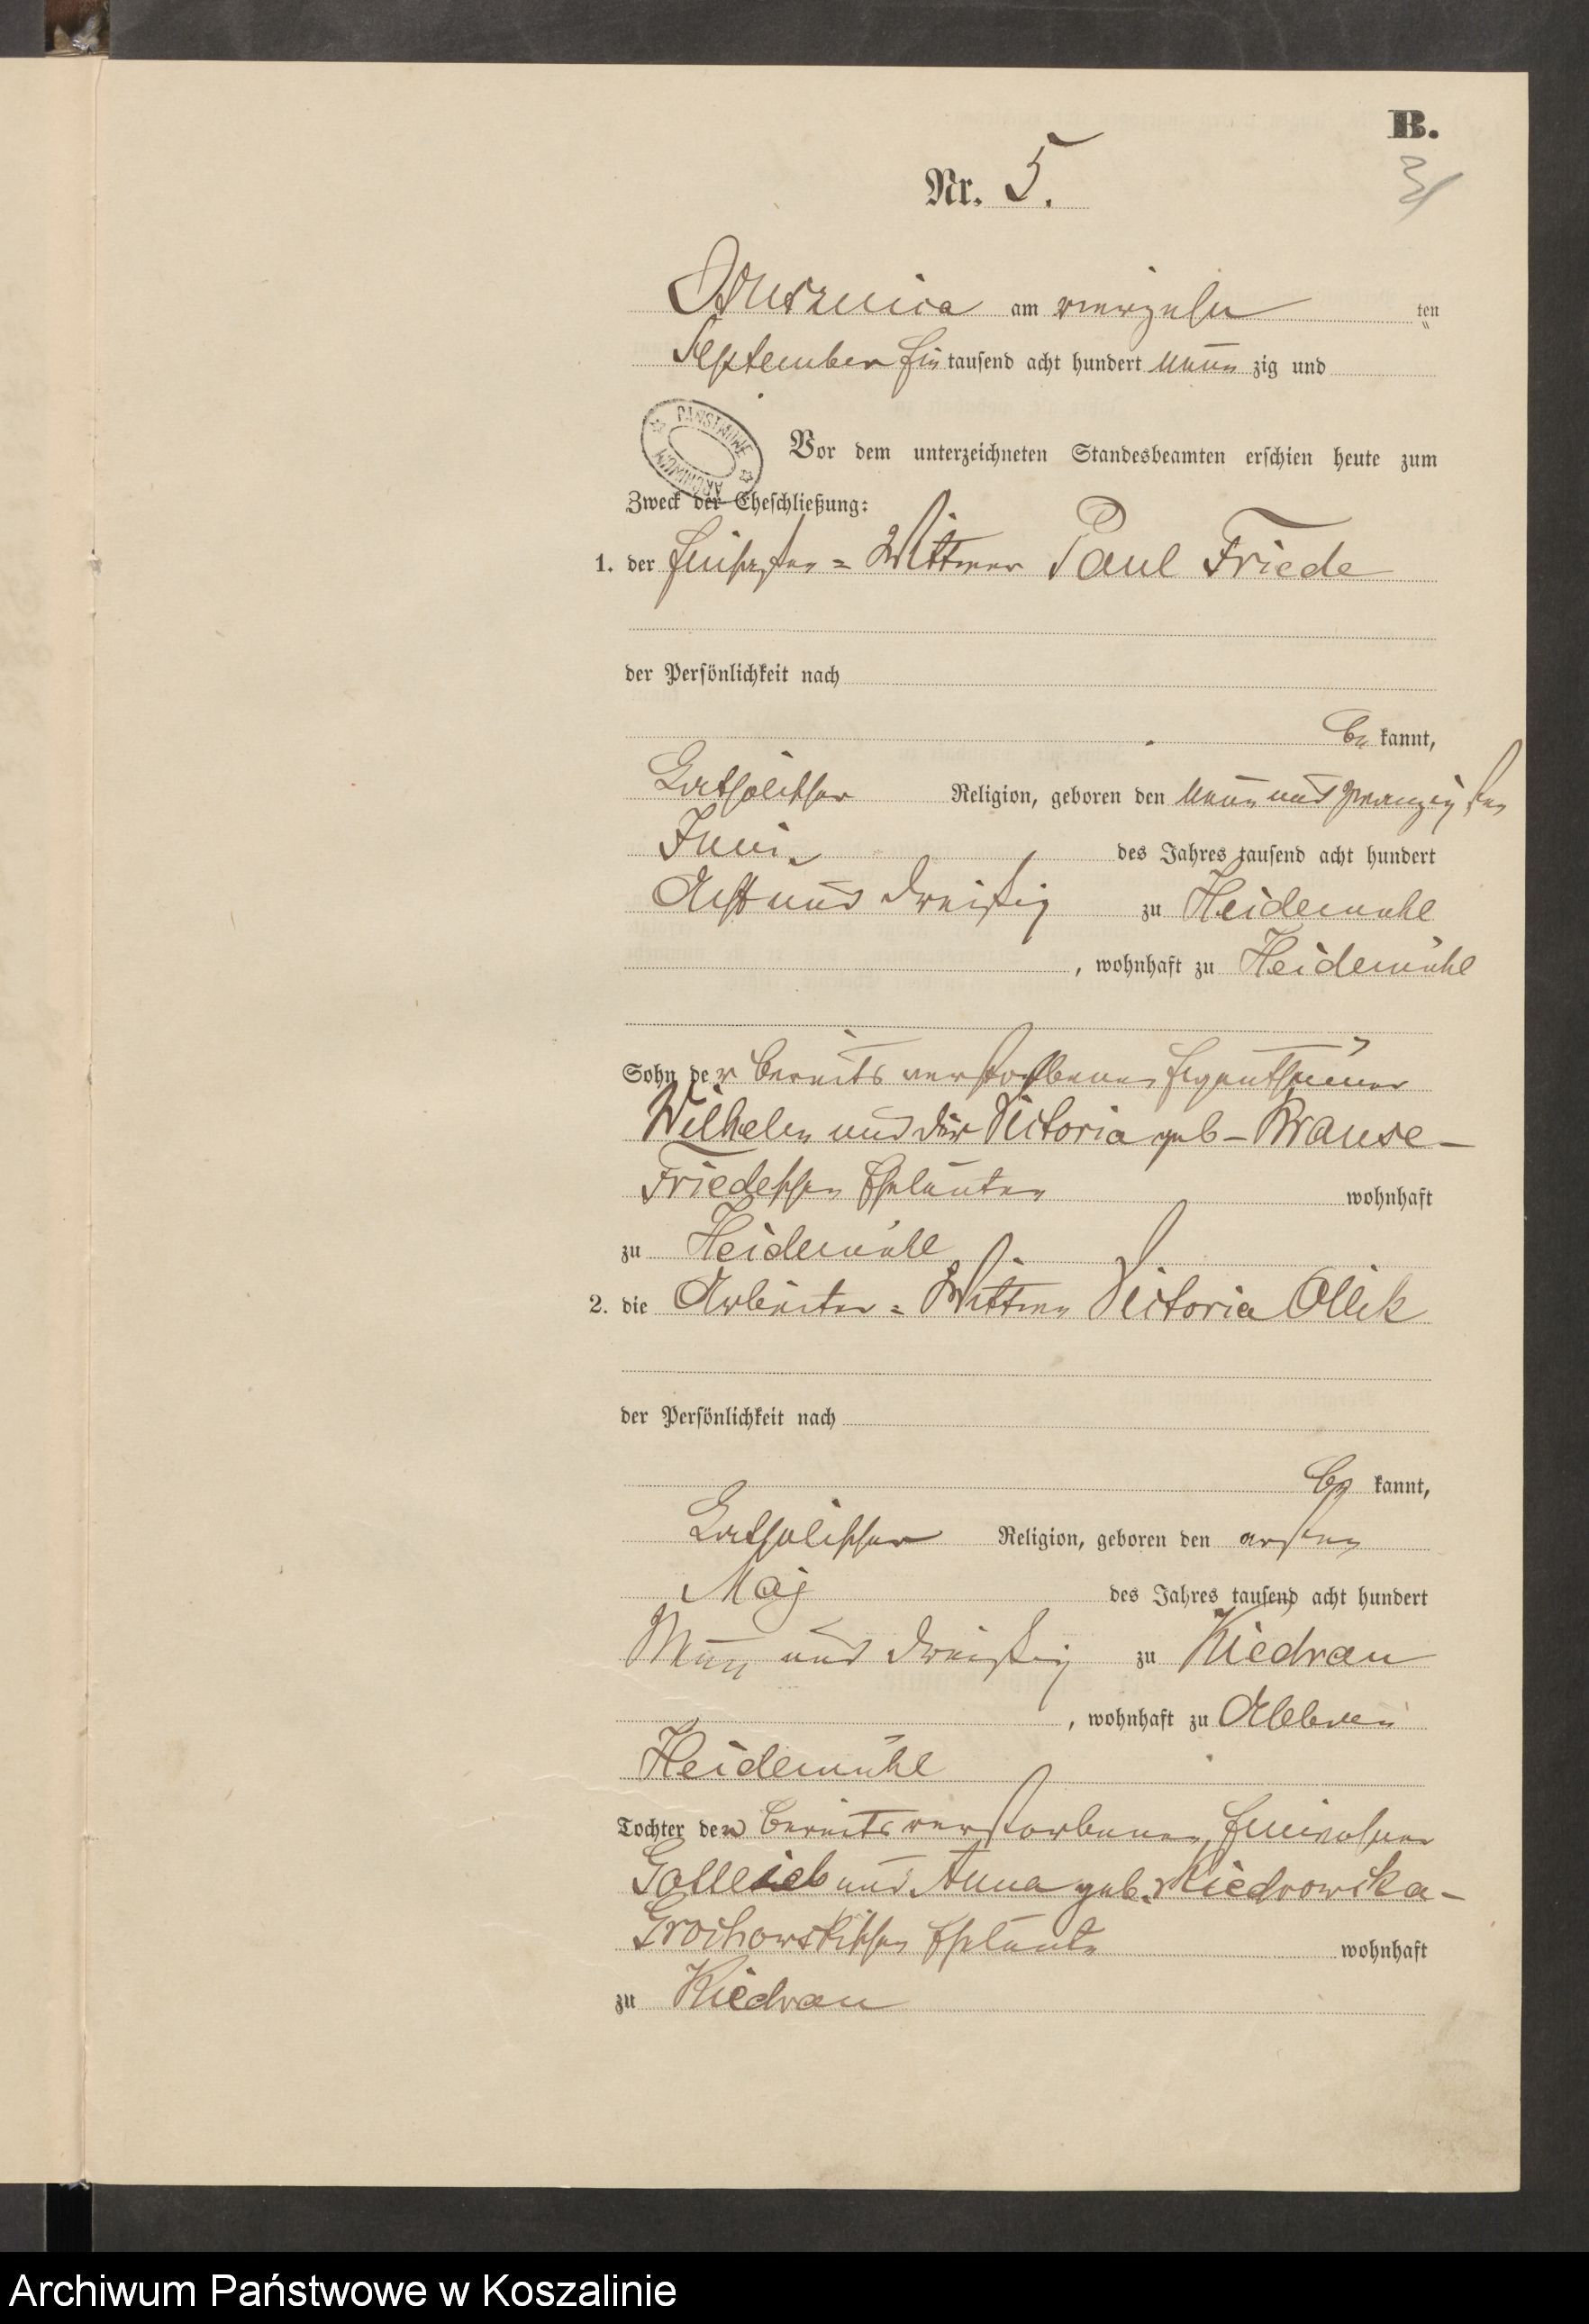 B.
Nr. 5.
31
am vierzehn ten
September Ein tausend acht hundert neun zig und
PAŃSTWOWE ARCHIWUM
Vor dem unterzeichneten Standesbeamten erschien heute zum
Zweck der Eheschließung:
1. der Wittwer Paul Friede
der Persönlichkeit nach
be kannt,
Katholischer Religion, geboren den neun und zwanzigsten
Juni des Jahres tausend acht hundert
Acht und dreißig zu Heidemühl
, wohnhaft zu Heidemühl
Sohn der bereits verstorbenen Eigenthümer
Wilhelm und der Victoria geb - Brause -
Friedeschen Eheleuten wohnhaft
zu Heidemühl
2. die Arbeiter = Wittwe Victoria Ollik
der Persönlichkeit nach
be kannt,
Katholischer Religion, geboren den ersten
Maj des Jahres tausend acht hundert
Neun und dreißig zu Kiedrau
, wohnhaft zu
Heidemühl
Tochter den bereits verstorbenen Einwohner
Gottlieb und Anna geb. Kiedrowska -
Grochowskischen Eheleute wohnhaft
zu Kiedrau
Archiwum Państwowe w Koszalinie